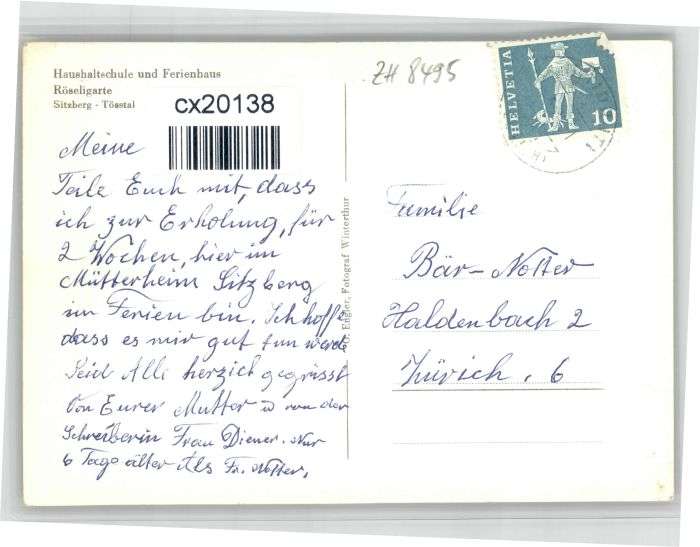 Haushaltschule und Ferienhaus
Röseligarte
Sitzberg - Tösstal
cx20138
Meine
Teile Euch mit, dass
ich zur Erholung, für
2 Wochen, hier im
Mütterheim Sitzberg
im Ferien bin. Ich hoffe
dass es mir gut tun werde
Seid Alle herzich gegrüsst
Von Eurer Mutter u von der
Schreiberin Frau Diener. Nur
6 Tage älter Als Fr. Notter.
Engler, Fotograf Winterthur
ZH 8495
HELVETIA
10
Familie
Bär-Notter
Haldenbach 2
Zürich. 6